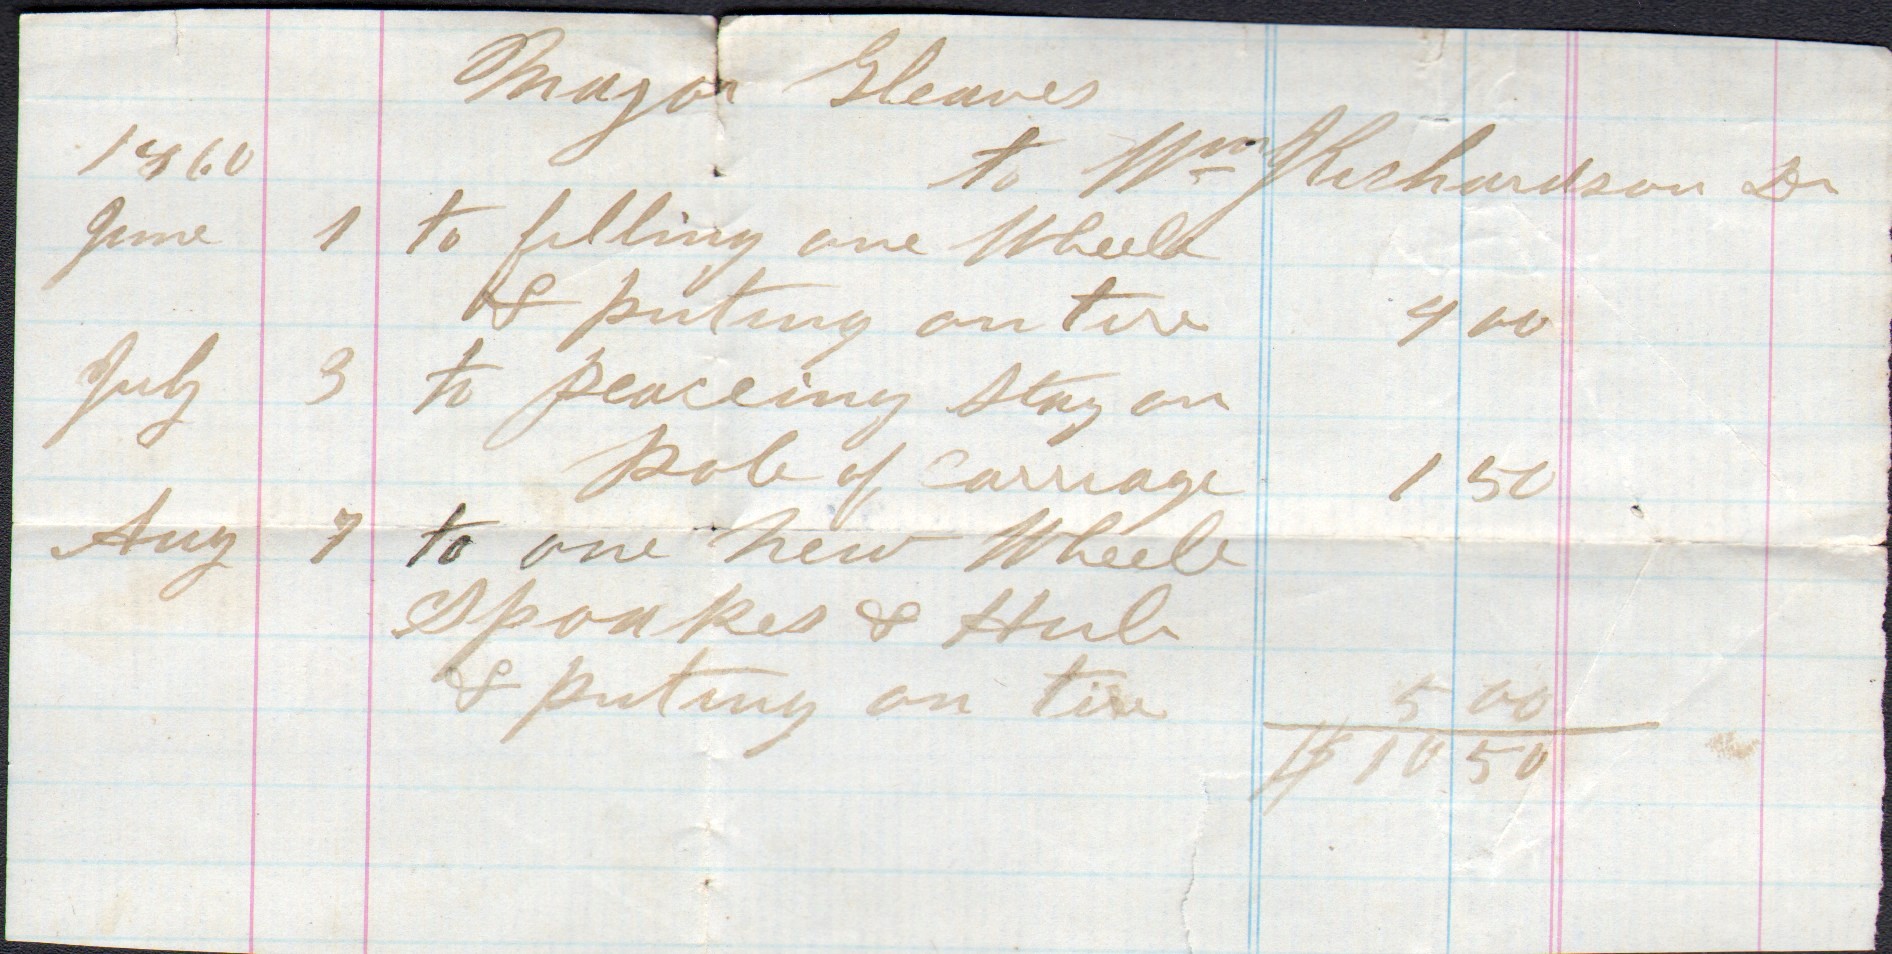 Major Gleaves
1860 to Wm J Richardson Dr
June 1 to filling one Wheele
& puting on tire 4 00
July 3 to peaceing stay on
pole of Carriage 1 50
Aug 7 to one New Wheele
Spoakes & Hub
& puting on tire 5 00
$ 10 50